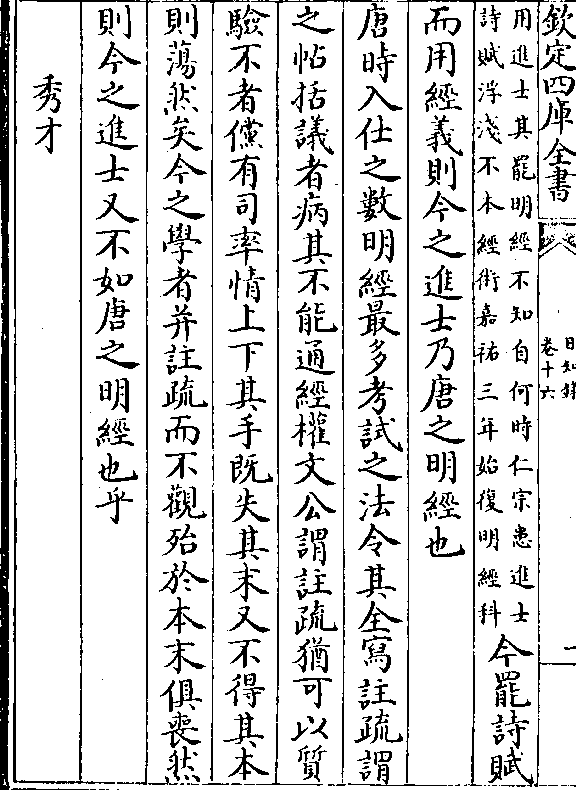 欽定四庫全書
日知録
卷十六
用進士其罷明經不知自何時仁宗患進士
詩賦浮淺不本經術嘉祐三年始復明經科
今罷詩賦
而用經義則今之進士乃唐之明經也
唐時入仕之數明經最多考試之法令其全寫註疏謂
之帖括議者病其不能通經權文公謂註疏猶可以質
驗不者儻有司率情上下其手既失其末又不得其本
則蕩然矣今之學者并註疏而不觀殆於本末俱喪然
則今之進士又不如唐之明經也乎
秀才